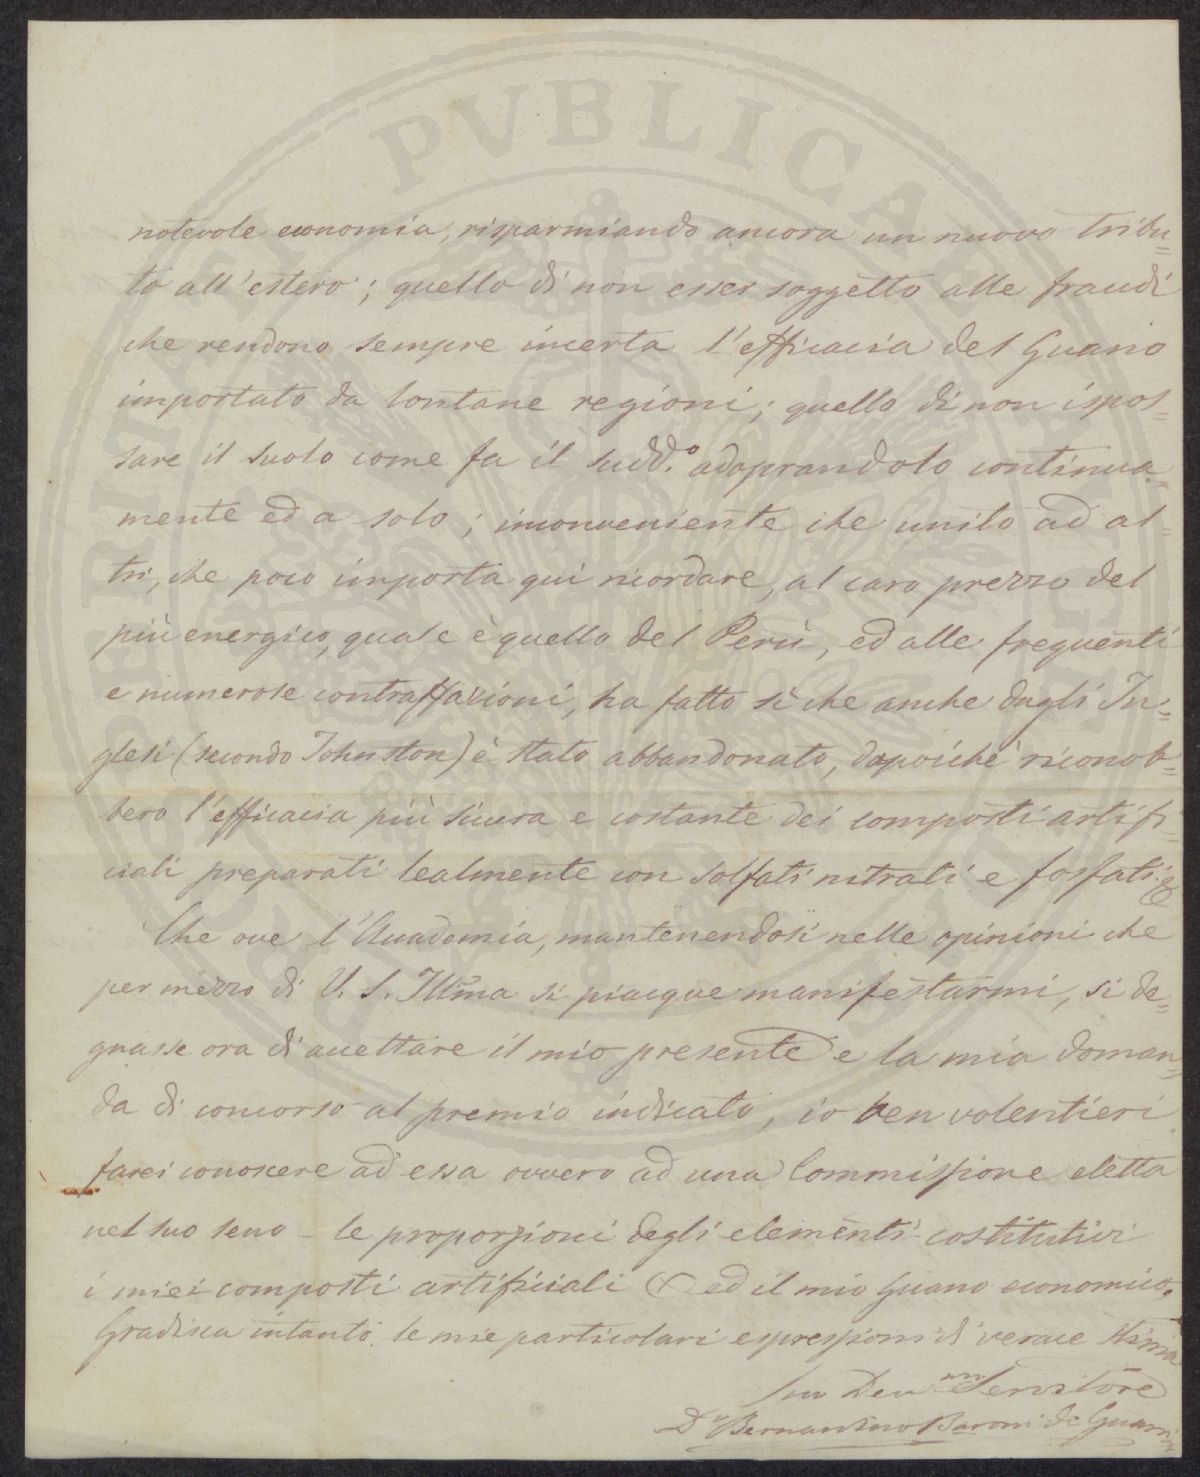 notevole economia, risparmiando ancora un nuovo tribu=
to all'estero; quello di non esser soggetto alle fraudi
che rendono sempre incerta l'efficacia del Guano
importato da lontane regioni; quello di non ispos=
sare il suolo come fa il sudd.o adoprandolo continua=
mente ed a solo; inconveniente che unito ad al=
tri, che poco importa qui ricordare, al caro prezzo del
più energico, quale è quello del Perù, ed alle frequenti
e numerose contraffazioni, ha fatto sì che anche dagli In=
glesi (secondo Johnston) è stato abbandonato, dapoichè riconob=
bero l'efficacia più sicura e costante dei composti artifi=
ciali preparati lealmente con solfati nitrati e fosfati &
Che ove l'Accademia, mantenendosi nelle opinioni che
per mezzo di V. S. Illma si piacque manifestarmi, si de=
gnasse ora di accettare il mio presente e la mia doman=
da di concorso al premio indicato, io ben volentieri
farei conoscere ad essa ovvero ad una Commissione eletta
nel suo seno - le proporzioni degli elementi costitutivi
i miei composti artificiali ed il mio Guano economico.
Gradisca intanto le mie particolari espressioni di verace stima
Suo Dev.mo Servitore
Dr Bernardino Baroni di
PVBLICAE